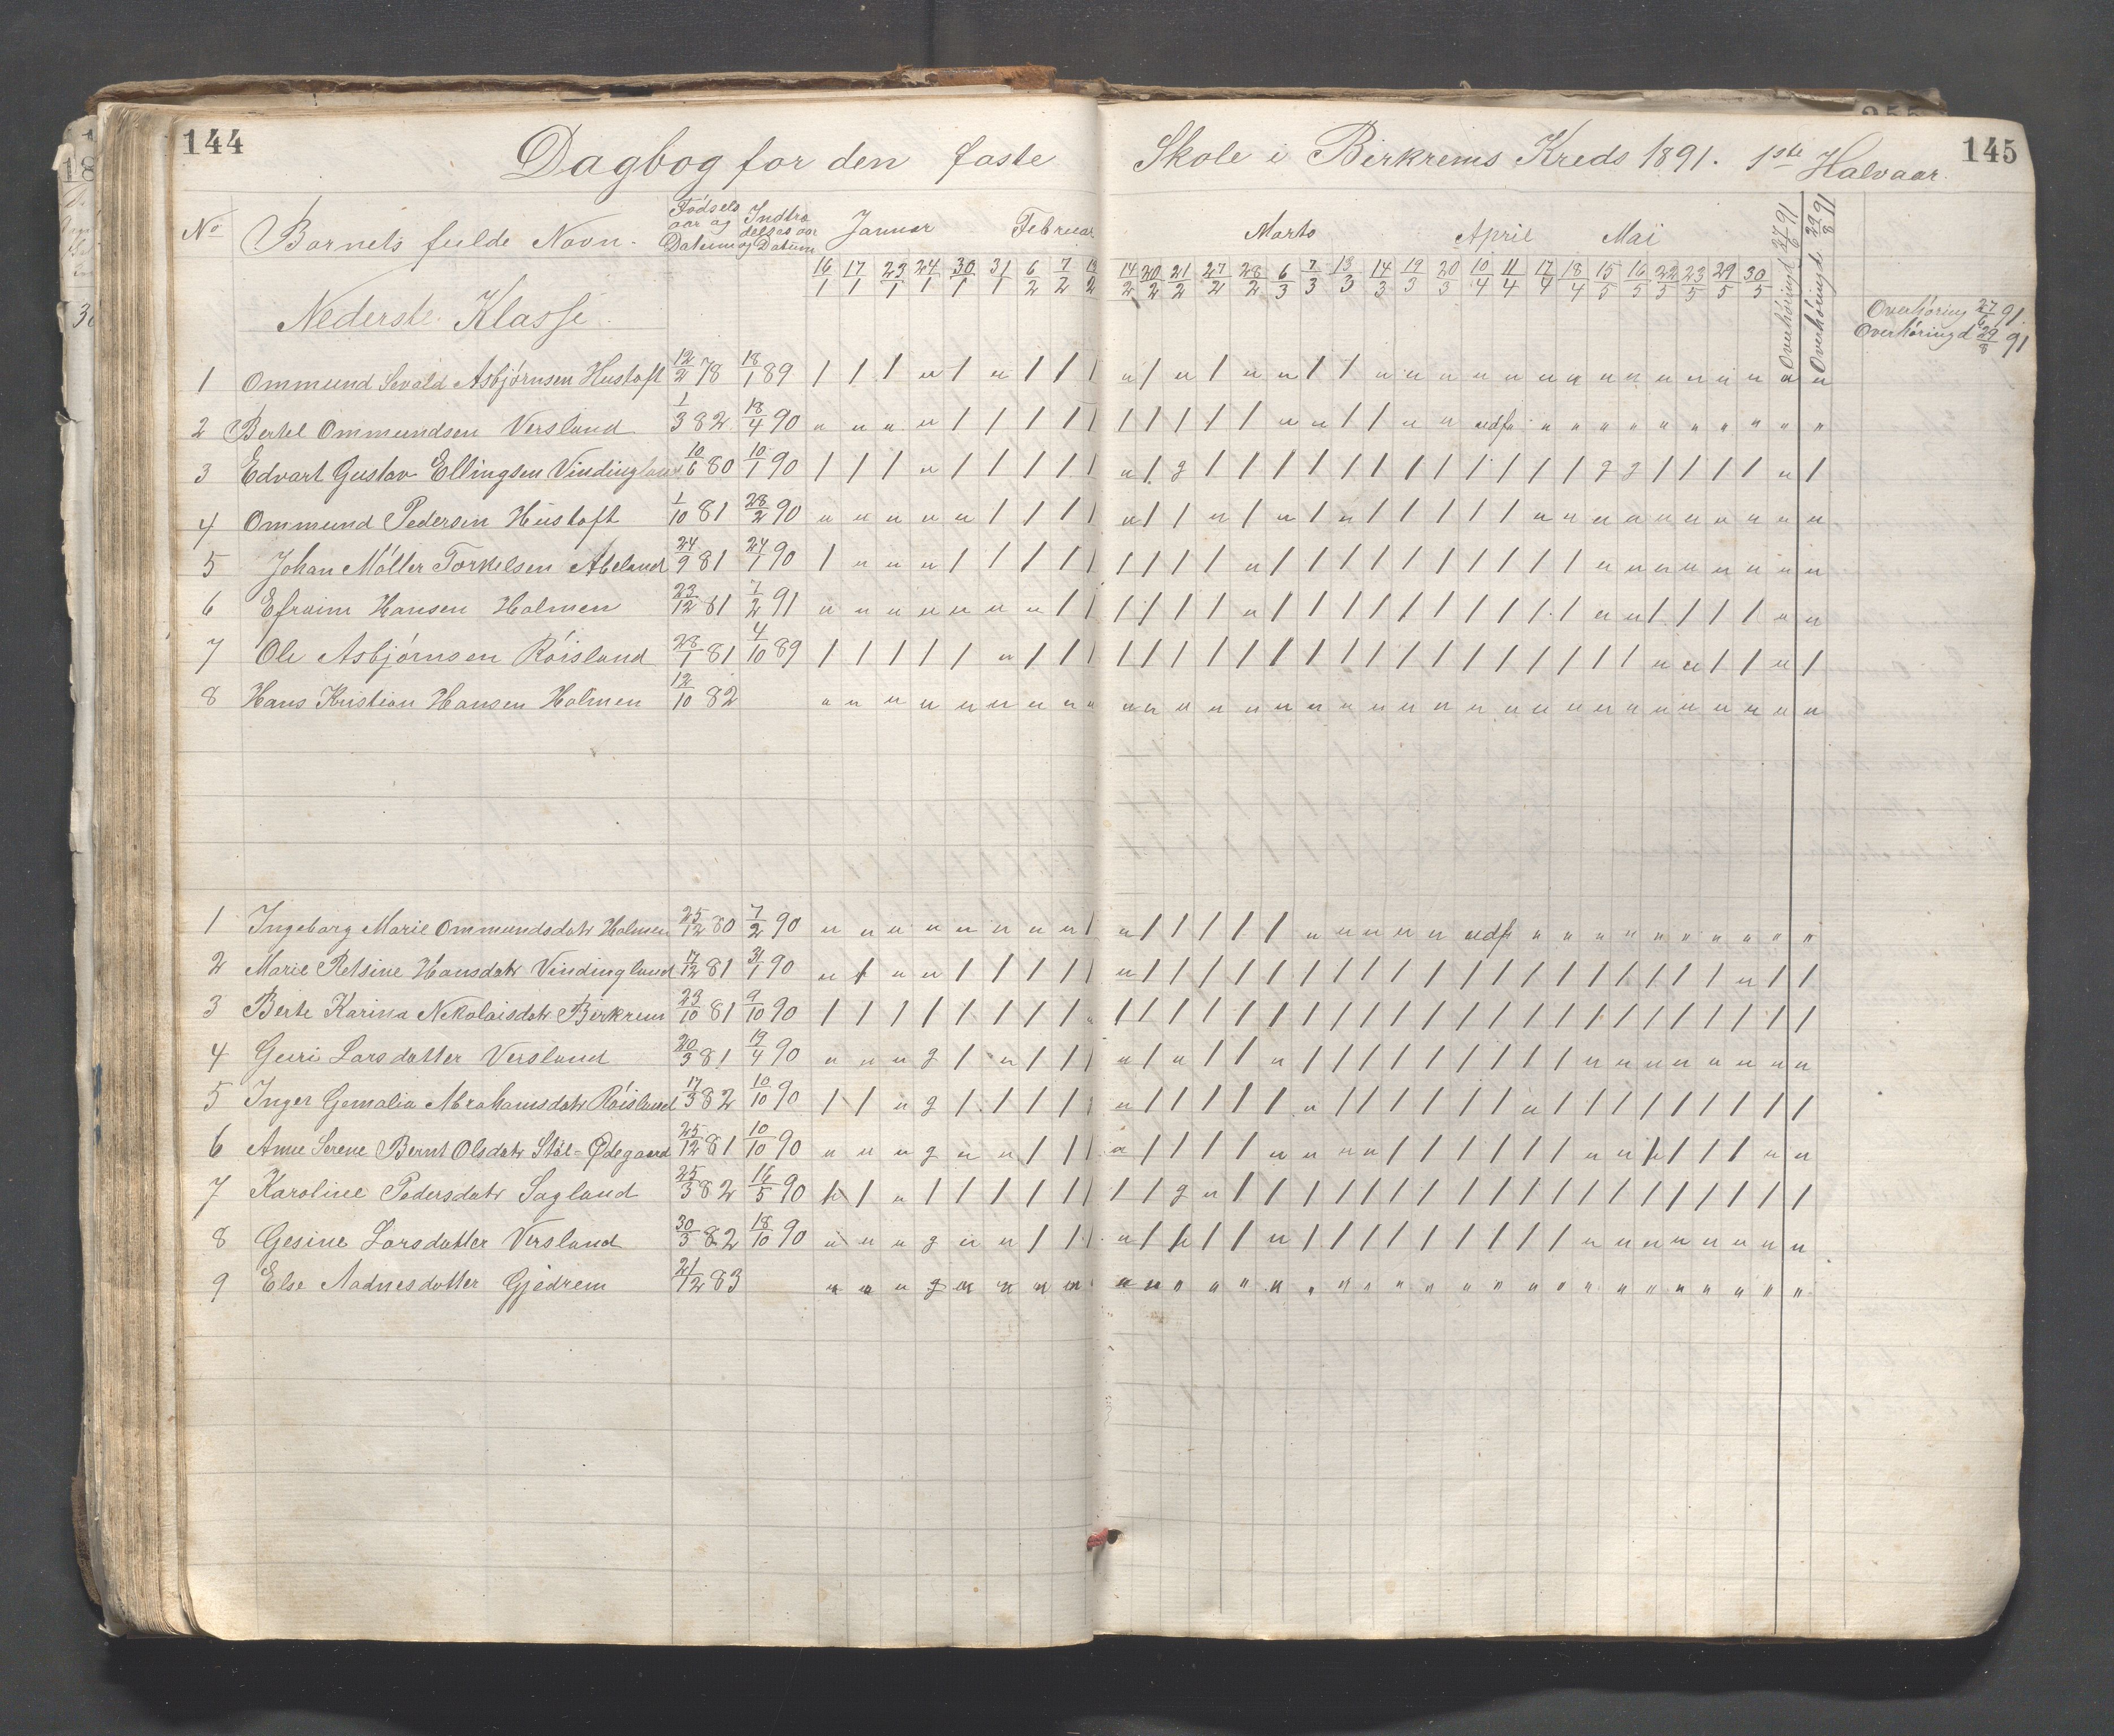 144
Dagbog for den faste Skole i Birkrems Kreds 1891. 1ste Halvaar.
145
No Barnets fulde Navn. Fødsels aar og Datum Indtrædelses aar og Datum Januar Februar Marts April Mai
16/1 17/1 23/1 24/1 30/1 31/1 6/2 7/2 13/2 14/2 20/2 21/2 27/2 28/2 6/3 7/3 13/3 14/3 19/3 20/3 10/4 11/4 17/4 18/4 15/5 16/5 22/5 23/5 29/5 30/5 Overhøringd 27/6 91 Overhøringd 29/8 91
Nederste Klasse.
Overhøring 27/6 91
Overhøringd 29/8 91
1 Ommund Sevald Asbjørnsen Hustoft 12/2 78 18/1 89
2 Bertel Ommundsen Versland 1/3 82 18/4 90 udfr
3 Edvart Gustav Ellingsen Vindingland 10/6 80 10/1 90
4 Ommund Pedersen Hustoft 1/10 81 28/2 90
5 Johan Møller Torkelsen Abeland 24/9 81 24/1 90
6 Efraim Hansen Holmen 23/12 81 7/2 91
7 Ole Asbjørnsen Røisland 28/1 81 4/10 89
8 Hans Kristian Hansen Holmen 12/10 82
1 Ingeborg Marie Ommundsdatr Holmen 25/12 80 7/2 90 udfr
2 Marie Retsine Hansdatr Vindingland 17/12 81 31/1 90
3 Berte Karina Nikolaisdatr Birkrem 23/10 81 9/10 90
4 Guri Larsdatter Versland 20/3 81 19/4 90
5 Inger Gemalia Abrahamsdatr Røisland 17/3 82 10/10 90
6 Anne Serene Bernt Olsdatr Støl=Ødegaard 25/12 81 10/10 90
7 Karoline Pedersdatr Sagland 25/3 82 16/5 90
8 Gesine Larsdatter Versland 30/3 82 18/10 90
9 Else Aadnesdatter Gjedrem 21/12 83